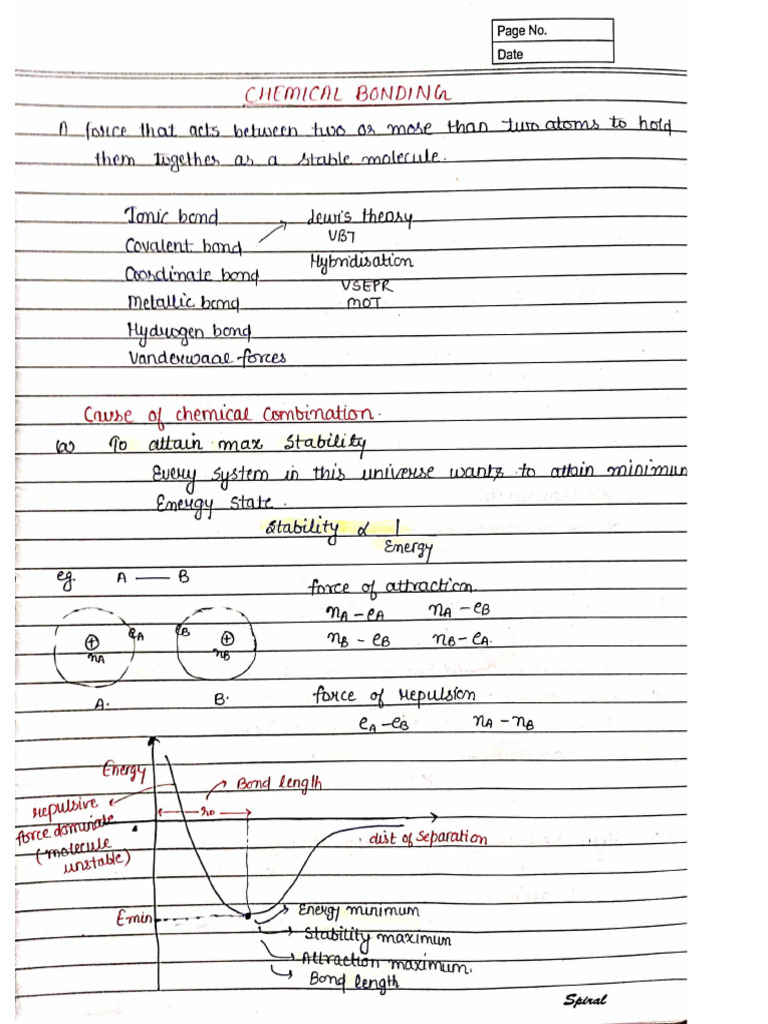 Page No.
Date
CHEMICAL BONDING
A force that acts between two or more than two atoms to hold
them together as a stable molecule.
Ionic bond
Lewis theory
Covalent bond
VBT
Hybridisation
Coordinate bond
VSEPR
Metallic bond
MOT
Hydrogen bond
Vanderwaal forces
Cause of chemical combination.
(a) To attain max stability
Every system in this universe wants to attain minimum
Energy state.
Stability ∝ 1
Energy
eg. A — B
force of attraction
nA - eA nA - eB
eA eB
nB - eB nB - eA.
nA nB
A. B.
force of repulsion
eA - eB nA - nB
Energy
Bond length
repulsive
r0
force dominate
dist of separation
(molecule
unstable)
Emin
Energy minimum
Stability maximum
Attraction maximum.
Bond length
Spiral